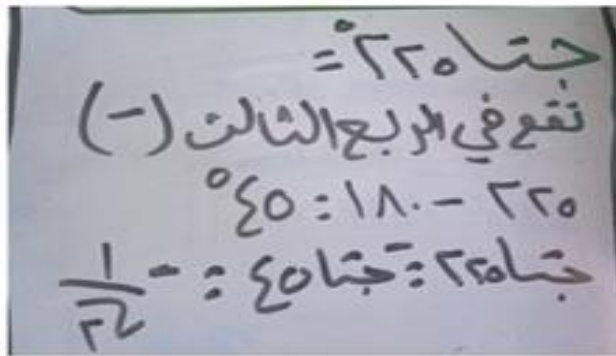 جتا ٢٢٥° =
تقع في الربع الثالث (-)
٢٢٥ - ١٨٠ = ٤٥°
جتا ٢٢٥ = - جتا ٤٥ = - ١/√٢